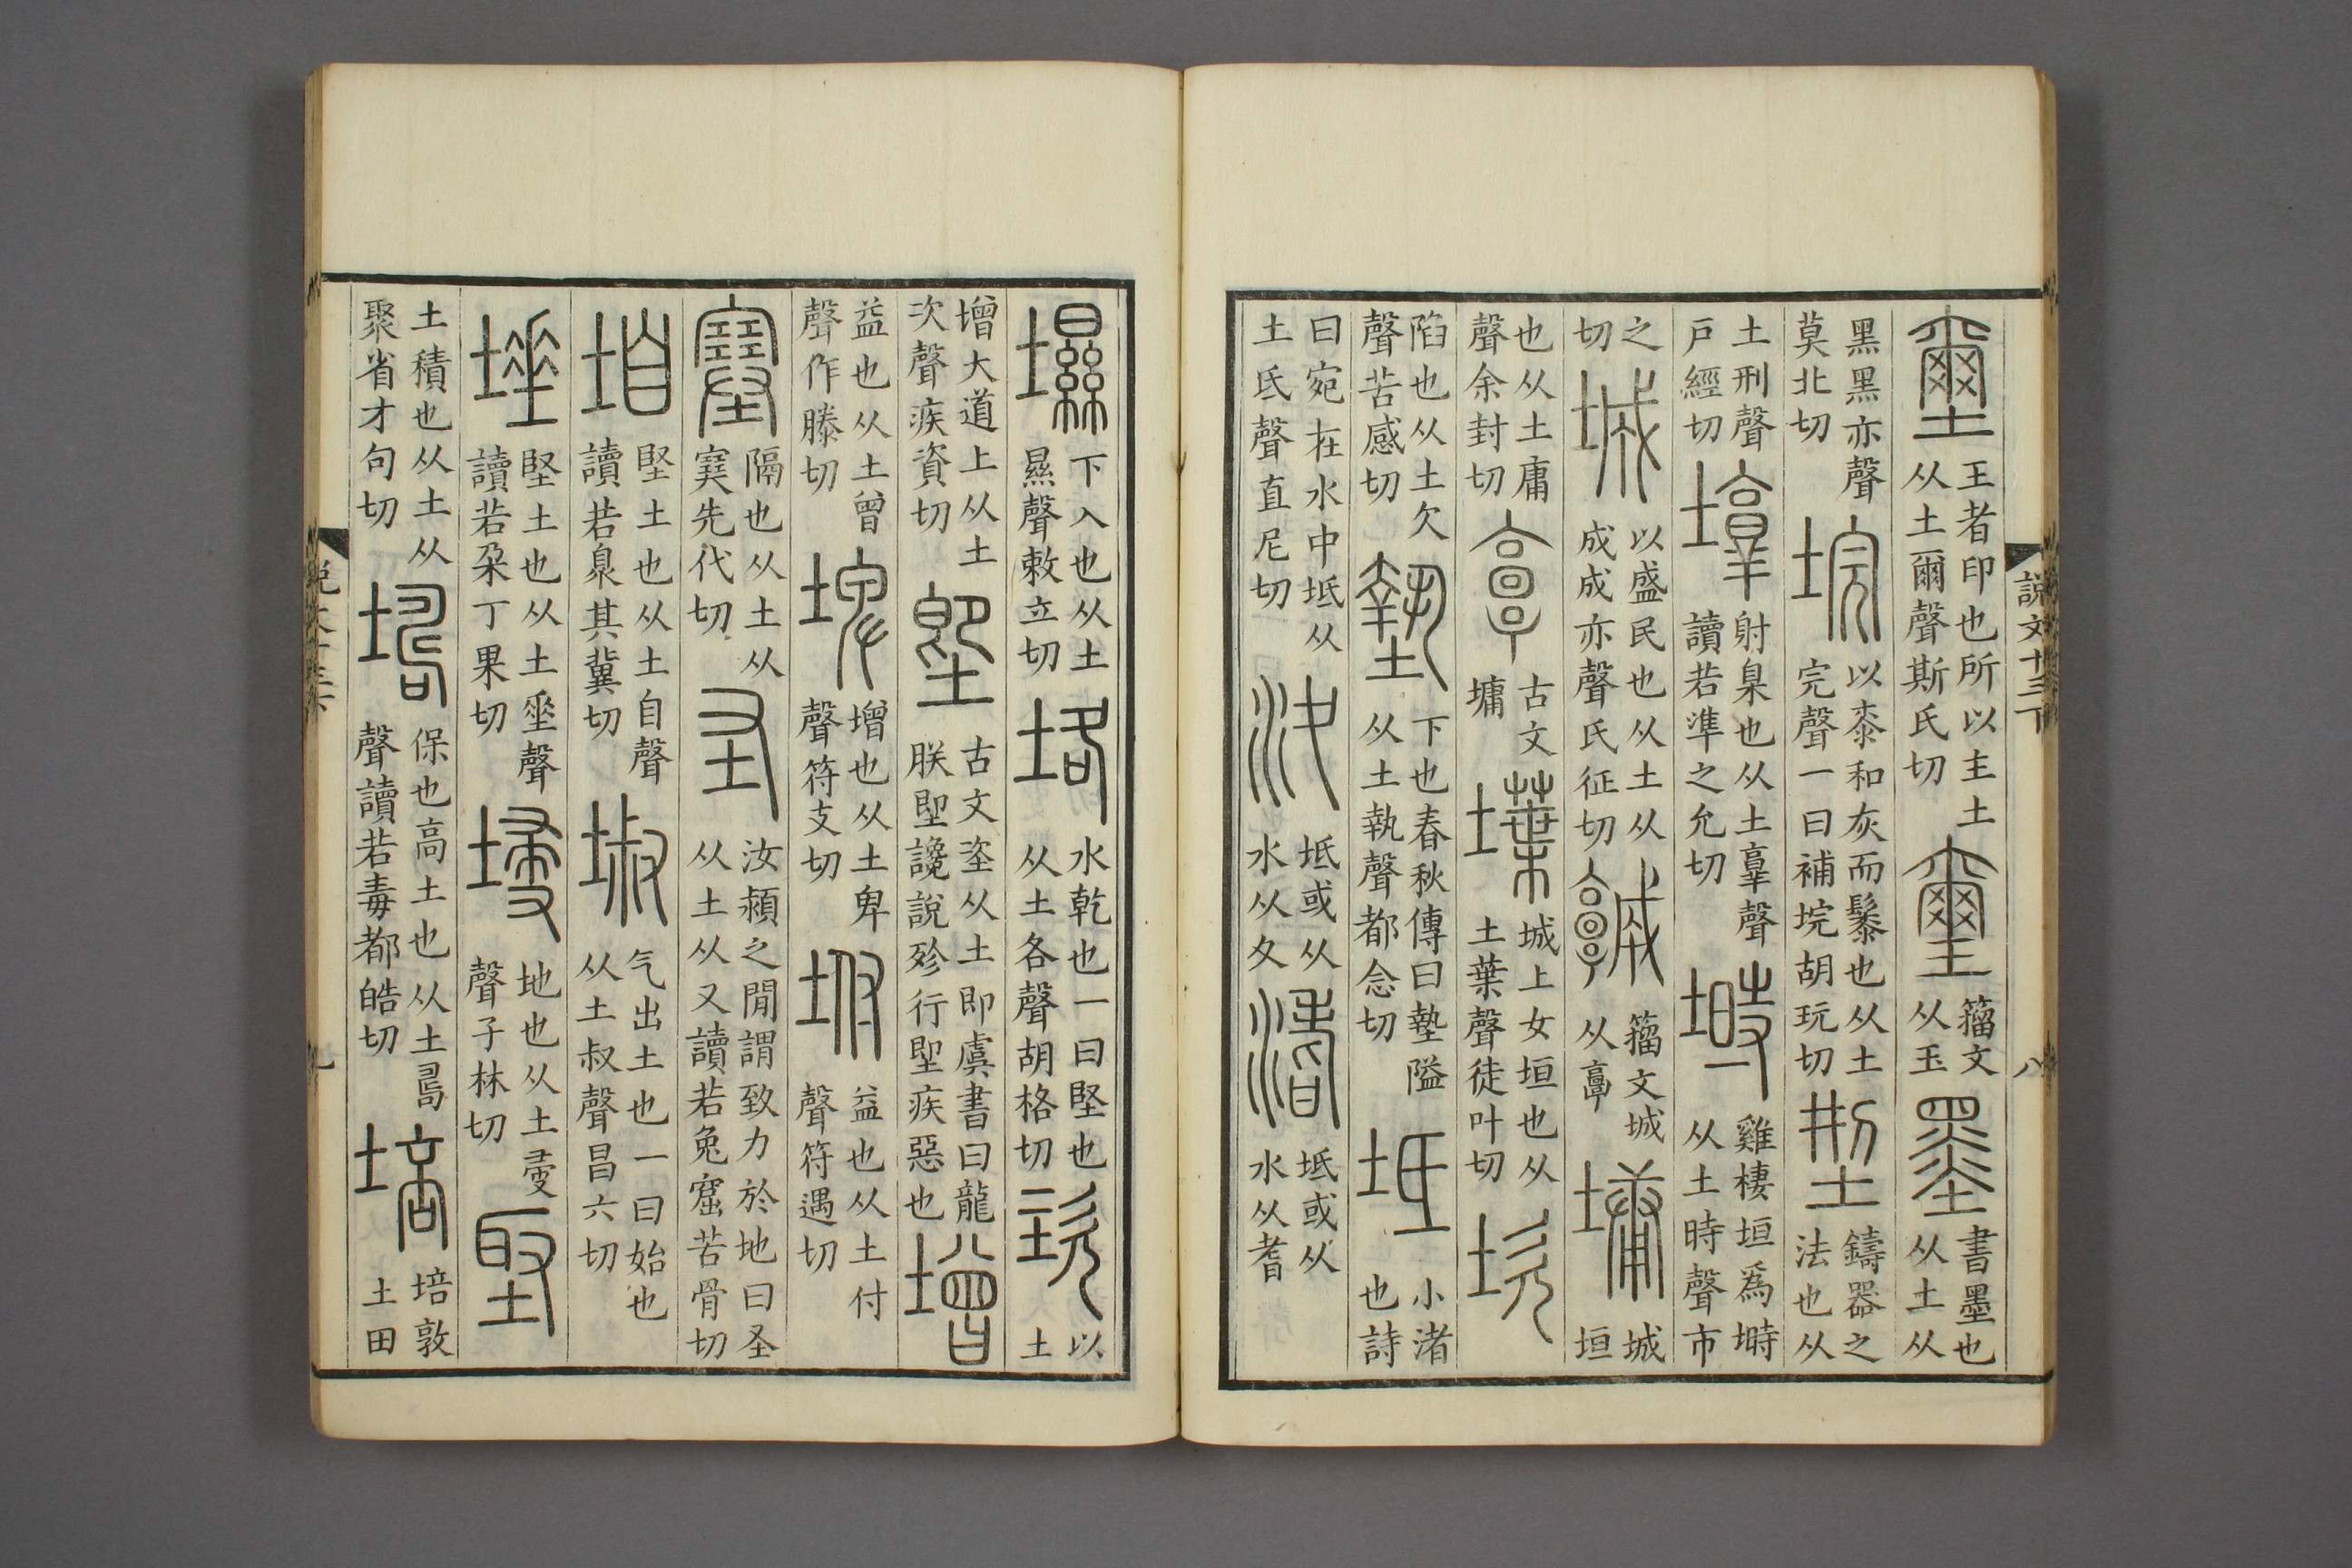 壐王者印也所以主土从土爾聲斯氏切璽籒文从玉墨書墨也从土从
黑黑亦聲莫北切垸以桼和灰而鬃也从土完聲一曰補垸胡玩切型鑄器之法也从
土刑聲戶經切𡑣射臬也从土𦎫聲讀若準之允切塒雞棲垣爲塒从土時聲市
之切城以盛民也从土从成成亦聲氏征切𩫨籒文城从𩫏墉城垣
也从土庸聲余封切𩫏古文墉堞城上女垣也从土葉聲徒叶切坎
陷也从土欠聲苦感切墊下也春秋傳曰墊隘从土執聲都念切坻小渚也詩
曰宛在水中坻从土氐聲直尼切汷坻或从水从夂渚坻或从水从耆
說文十三下
八
㙷下入也从土㬎聲敕立切垎水乾也一曰堅也从土各聲胡格切垐以土
增大道上从土次聲疾資切堲古文垐从土即虞書曰龍朕堲讒說殄行堲疾惡也增
益也从土曾聲作滕切埤增也从土卑聲符支切坿益也从土付聲符遇切
塞隔也从土从𡫳先代切圣汝潁之閒謂致力於地曰圣从土从又讀若兔窟苦骨切
垍堅土也从土自聲讀若臮其冀切埱气出土也一曰始也从土叔聲昌六切
埵堅土也从土𡍮聲讀若朵丁果切𡎠地也从土㝲聲子林切堅
土積也从土从聚省才句切壔保也高土也从土𠷎聲讀若毒都皓切培培敦土田